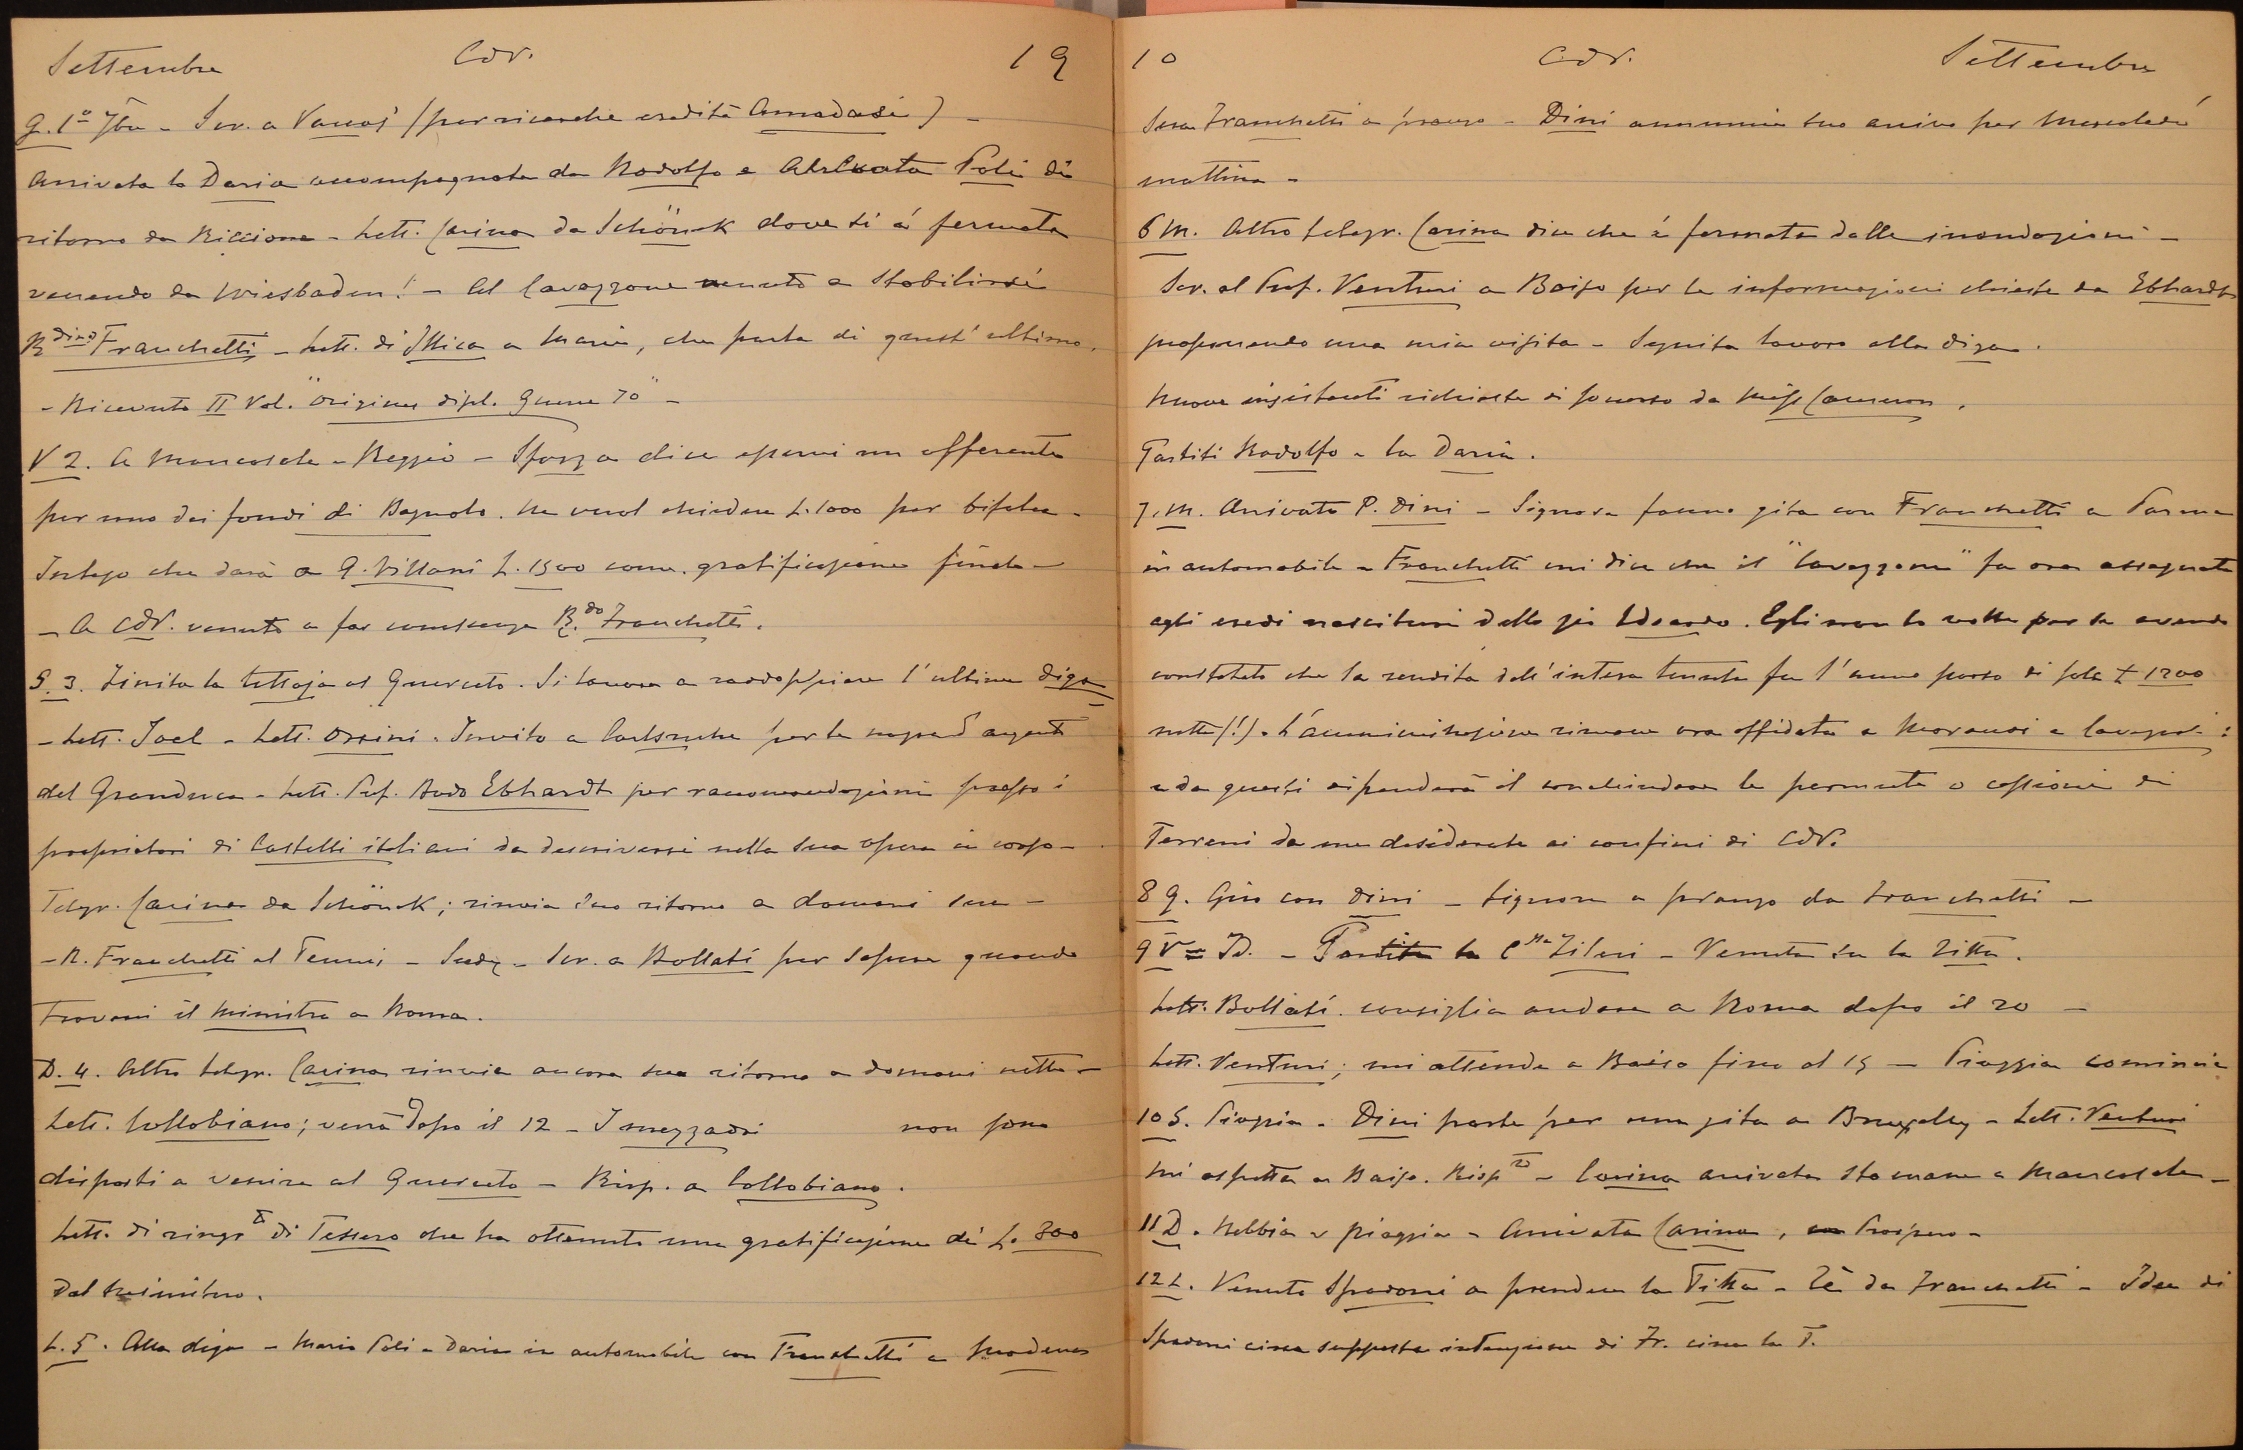 Settembre CdV. 19
G. 1° 7bre - Scr. a Vaccaj (per ricerche eredità Amadasi) -
Arrivata la Daria accompagnata da Rodolfo e Poli di
ritorno da Riccione - Lett. Carina da Schönek dove si è fermata
venendo da Wiesbaden! - Al Cavazzone venuto a stabilirsi
R.dino Franchetti - Lett. di Ittica a Maria, che parla di quest'ultimo.
- Ricevuto II Vol. "Origines dipl. Guerre 70" -
V 2. A Mancasale e Reggio - Sforza dice esservi un offerente
per uno dei fondi di Bagnolo. Ne vuol chiedere L. 1000 per bifolca -
Inteso che darà a G. Villani L. 1500 come gratificazione finale -
- A CdV. venuto a far conoscenza R.do Franchetti.
S. 3. Finita la tettoja al Querceto. Si lavora a raddoppiare l'ultima diga
- Lett. Joel - Lett. Orsini - Invito a Carlsruhe per le nozze d'argento
del Granduca - Lett. Prof. Bodo Ebhardt per raccomandazioni presso i
proprietari di Castelli italiani da descriversi nella sua opera in corso -
Telegr. Carina da Schönek; rinvia suo ritorno a domani sera -
- R. Franchetti al Tennis - - Scr. a Bollati per sapere quando
trovasi il Ministro a Roma.
D. 4. Altro telegr. Carina rinvia ancora suo ritorno a domani notte -
Lett. Collobiano; verrà dopo il 12 - I mezzadri non sono
disposti a venire al Querceto - Risp. a Collobiano.
Lett. di ringr.to di Tessero che ha ottenuto una gratificazione di L. 300
dal Ministero.
L. 5. Alla diga - Maria Poli e Daria in automobile con Franchetti a Modena
10 CdV. Settembre
Sera Franchetti a pranzo - Dini annuncia suo arrivo per Mercoledì
mattina -
6 M. Altro telegr. Carina dice che è fermata dalle inondazioni -
Scr. al Prof. Venturi a Baiso per le informazioni chieste da Ebhardt
proponendo una mia visita - Seguita lavoro alla diga.
Nuove insistenti richieste di soccorso da Miss Cameron.
Partiti Rodolfo e la Daria.
7. M. Arrivato P. Dini - Signore fanno gita con Franchetti a Parma
in automobile - Franchetti mi dice che il "Cavazzone" fu ora assegnato
agli eredi nascituri dello zio Edoardo. Egli non lo volle per se avendo
constatato che la rendita dell'intera tenuta fu l'anno scorso di sole £ 1200
nette (!). L'amministrazione rimane ora affidata a Morandi e :
e da questi dipenderà il conchiudere le permute o cessioni di
Terreni da me desiderate ai confini di CdV.
8 G. Giro con Dini - Signore a pranzo da Franchetti -
9 V = Id. - Partita la C.ssa Zileri - Venuta su la Titta.
Lett. Bollati. consiglia andare a Roma dopo il 20 -
Lett. Venturi; mi attende a Baiso fino al 15 - Pioggia comincia
10 S. Pioggia - Dini parte per una gita a Bruxelles - Lett. Venturi
mi aspetta a Baiso. Risp.to - Carina arrivata stamane a Mancasale -
11 D. Nebbia e pioggia - Arrivata Carina, Prospero -
12 L. Venuto Spadoni a prendere la Titta - Tè da Franchetti - Idee di
Spadoni circa supposta intenzione di Fr. circa la T.